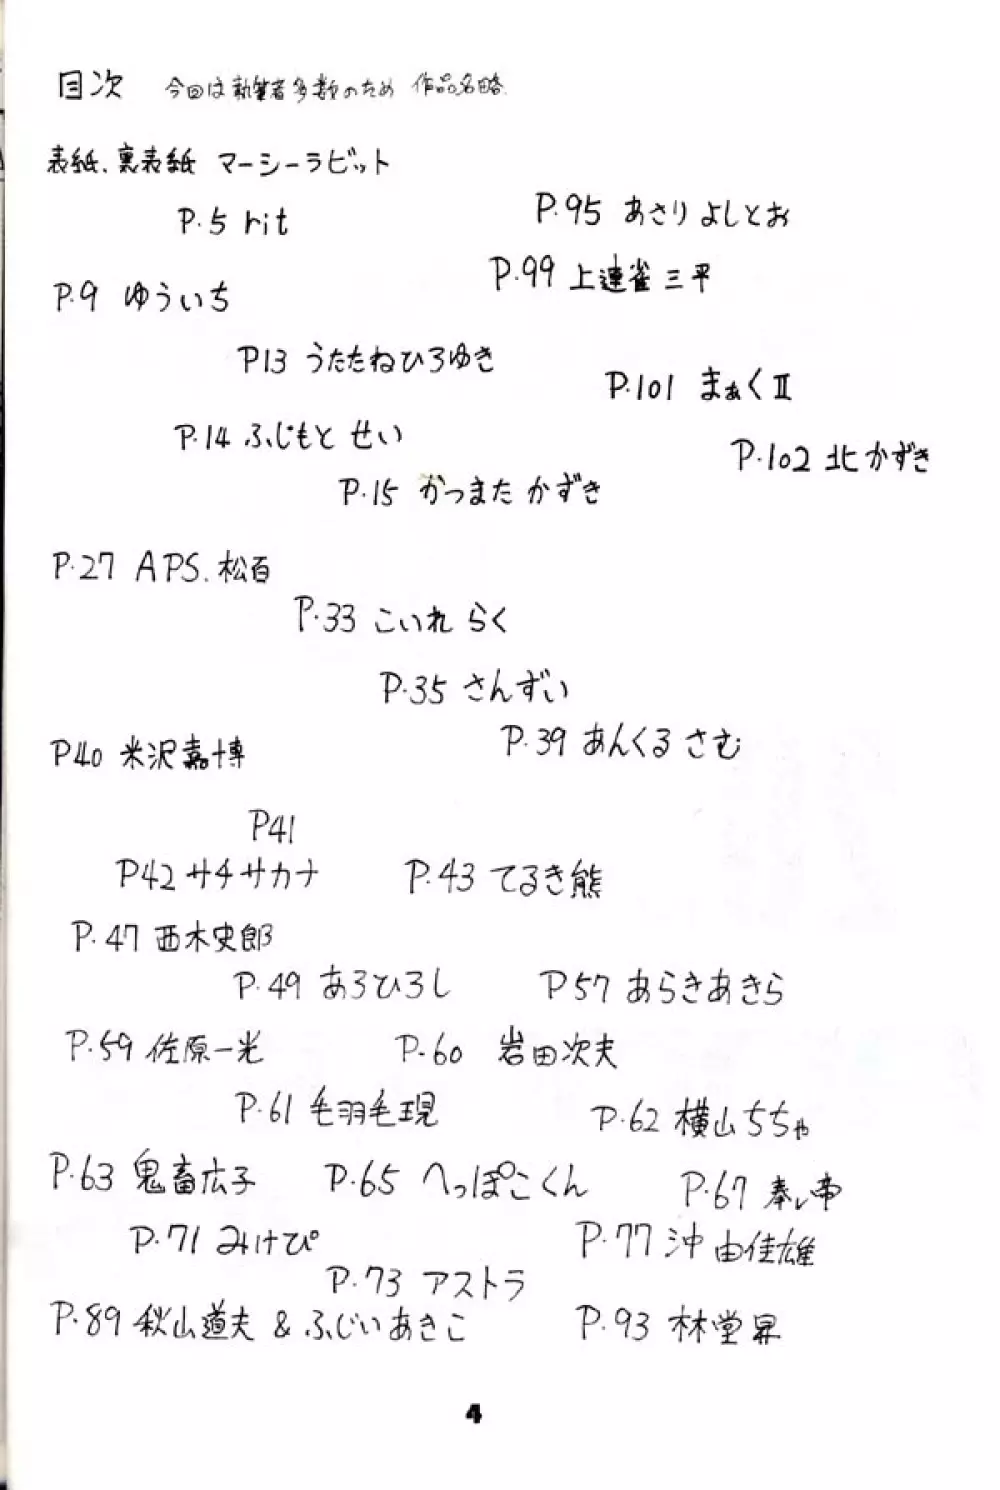 目次 今回は執筆者多数のため 作品名略.
表紙、裏表紙 マーシーラビット
P.5 rit
P.9 ゆういち
P13 うたたねひろゆき
P.14 ふじもと せい
P.15 かつまた かずき
P.27 APS.松百
P.33 こいれ らく
P.35 さんずい
P.39 あんくる さむ
P40 米沢嘉博
P41
P42 サチサカナ
P.43 てるき熊
P.47 西木史郎
P.49 あろひろし
P57 あらきあきら
P.59 佐原一光
P.60 岩田次夫
P.61 毛羽毛現
P.62 横山ちちゃ
P.63 鬼畜広子
P.65 へっぽこくん
P.67
P.71 みけぴ
P.73 アストラ
P.77 沖由佳雄
P.89 秋山道夫 & ふじいあきこ
P.93 林堂昇
P.95 あさり よしとお
P.99 上連雀 三平
P.101 まぁくⅡ
P.102 北 かずき
4